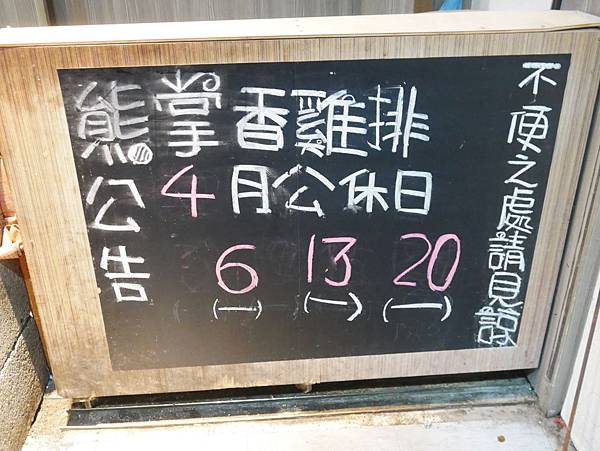 熊掌香雞排
公告
4月公休日
6 13 20
(一) (一) (一)
不便之處請見諒